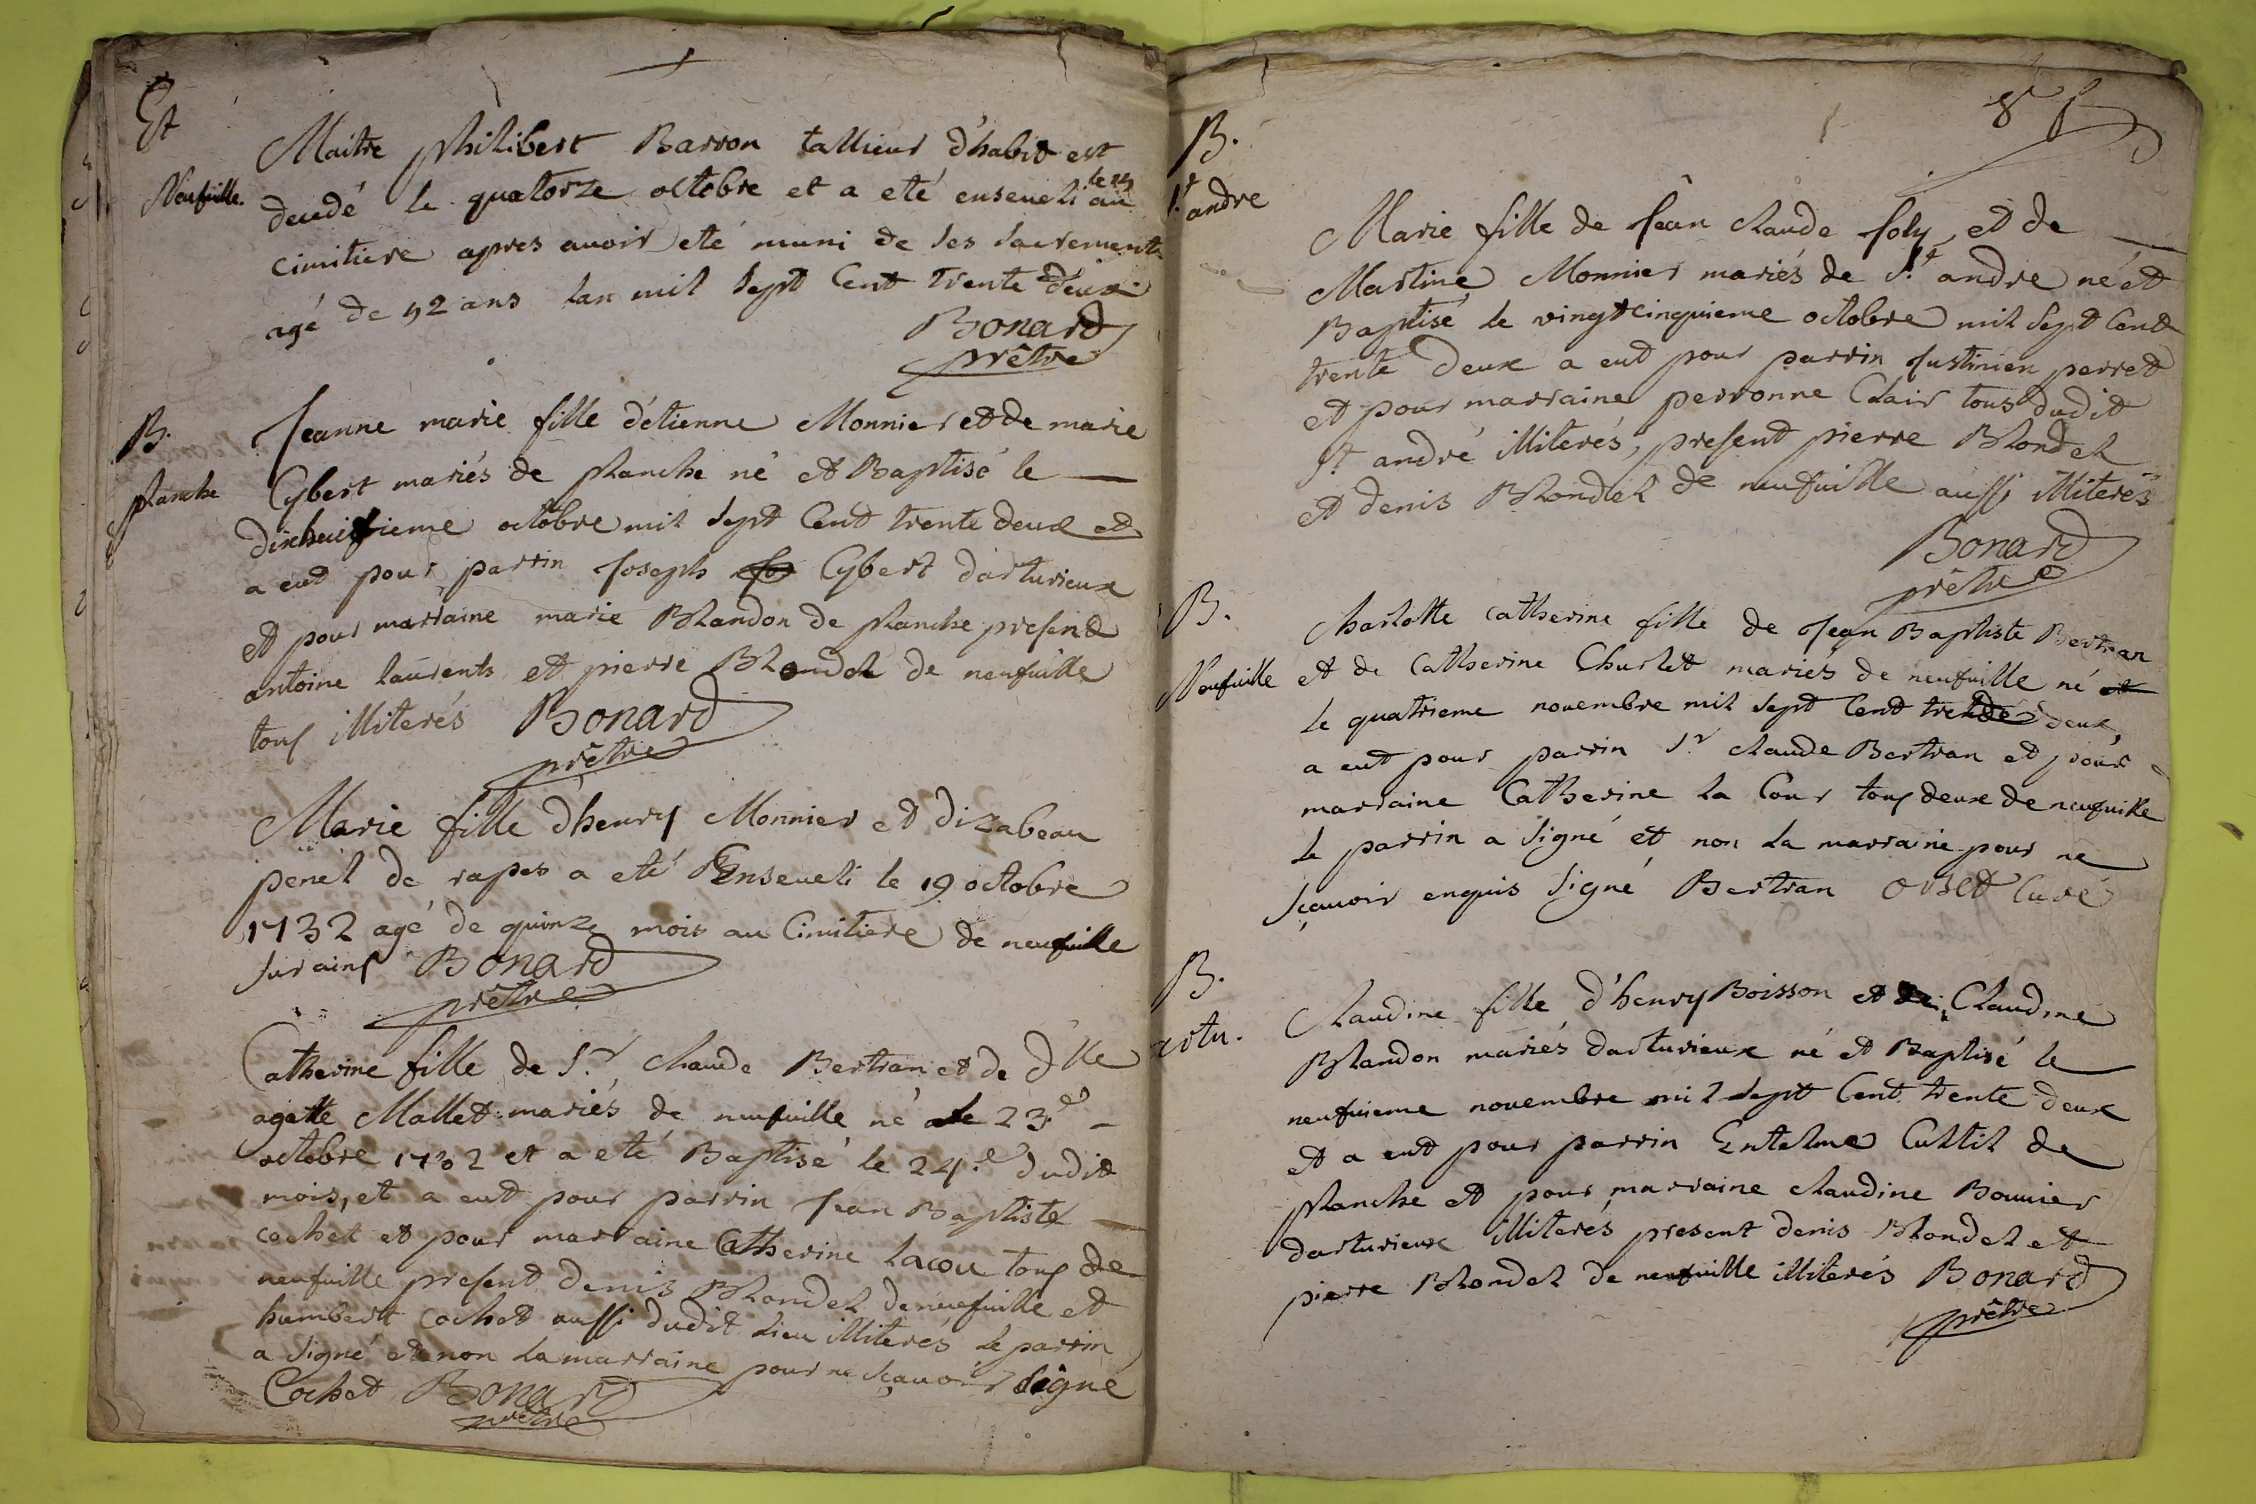 Et
Neufuille.
Maitre philibert Barron tallieur d'habit est
decedé le quatorze octobre et a eté enseueli le 15 au
cimitiere apres auoir eté muni de ses sacrements
agé de 52 ans lan mil sept Cent trente deux
Bonard
prêtre
B.
planche
Jeanne marie fille d'etienne Monnier et de marie
Cybert mariés de planche né et Baptisé le
dixhuictieme octobre mil sept Cent trente deux et
a eut pour parrin Joseph Cybert darturieux
et pour marraine marie Blandon de planche present
antoine laurents et pierre Blondel de neufuille
tous illiterés Bonard
prêtre
Marie fille d'henry Monnier et dizabeau
penel de rapes a eté Enseueli le 19 octobre
1732 agé de quinze mois au Cimitiere de neufuille
sur ains Bonard
prêtre
Catherine fille de Sr. claude Bertran et de dlle
agatte Mallet mariés de neufuille né le 23e
octobre 1732 et a eté Baptisé le 24.e dudit
mois, et a eut pour parrin Jean Baptiste
cochet et pour marraine Catherine lacou tous de
neufuille present denis Blondel de neufuille et
humbert cochet aussi dudit lieu illiterés le parrin
a signé et non la marraine pour ne sçauoir signé
Cochet Bonard
prêtre
8
B.
St andre
Marie fille de Jean claude Joly et de
Martine Monnier mariés de St. andre né et
Baptisé le vingtcinquieme octobre mil sept Cent
trente deux a eut pour parrin Justinien perret
et pour marraine perronne Clair tous dudit
St andré illiterés, present pierre Blondel
et denis Blondel de neufuille aussi illiterés
Bonard
prêtre
B.
Neufuille
Charlotte catherine fille de Jean Baptiste Bertran
et de Catherine Churlet mariés de neufuille né et
le quatrieme novembre mil sept Cent trente deux,
a eut pour parrin Sr claude Bertran et pour
marraine Catherine la Cour tous deux de neufuille
le parrin a signé et non la marraine pour ne
sçauoir enquis signé Bertran orset Curé
B.
artu.
Claudine fille d'henry Boisson et de Claudine
Blandon mariés darturieux né et Baptisé le
neufuieme novembre mil sept Cent trente deux
et a eut pour parrin Entelme Cultil de
planche et pour marraine claudine Bouuier
darturieux illiterés present denis Blondel et
pierre Blondel de neufuille illiterés Bonard
prêtre